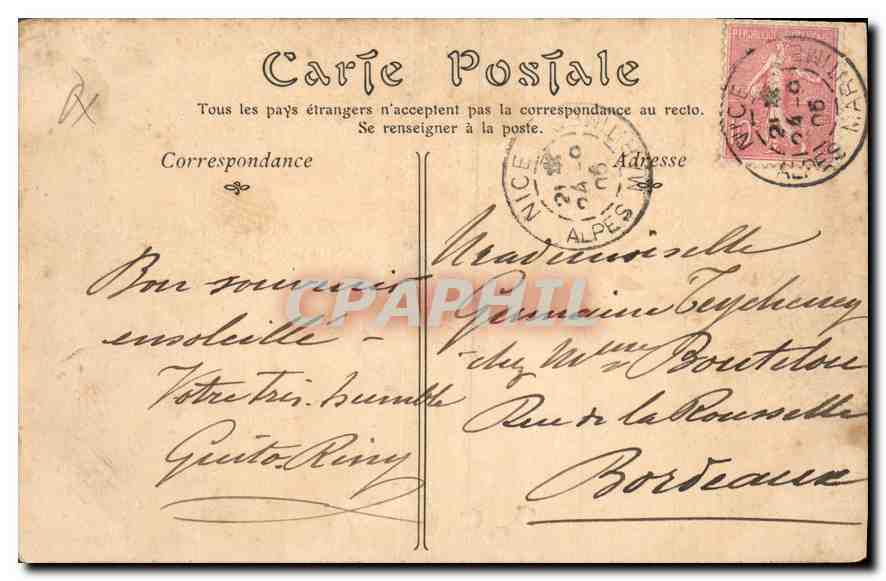 Carte Postale
Tous les pays étrangers n'acceptent pas la correspondance au recto.
Se renseigner à la poste.
Correspondance
Adresse
RÉPUBLIQUE
NICE
21
24 - 9
05
ALPES MARIM
NICE
21
24 - 9
05
ALPES M
Bon souvenir
ensoleillé -
Votre très humble
Guito Riny
Mademoiselle
Germaine Teycheney
chez Mme Boutelou
Rue de la Rousselle
Bordeaux
CPAPHIL